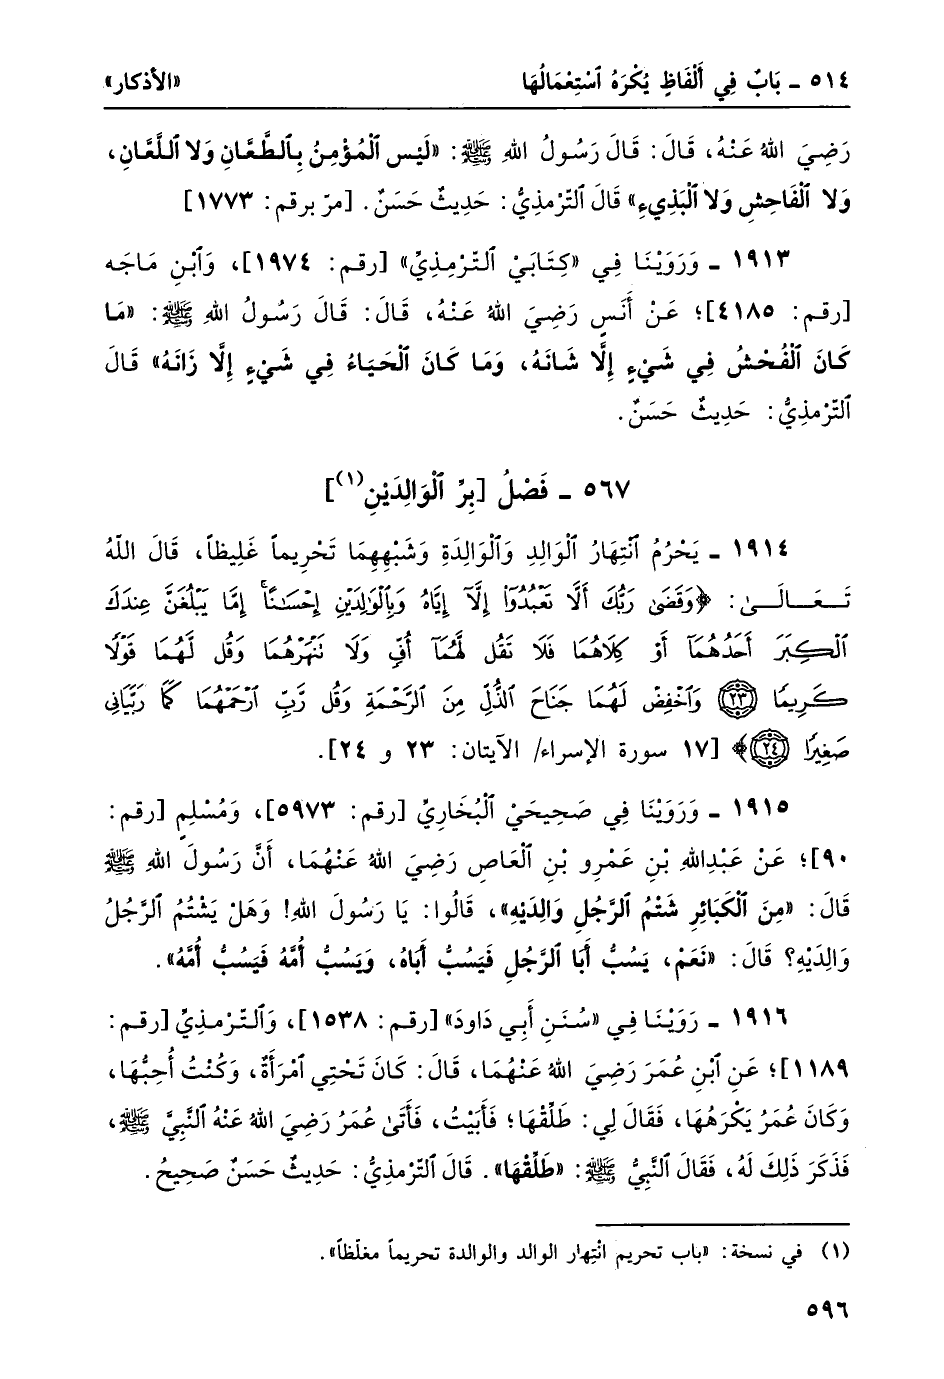 ٥١٤ - بَابٌ فِي أَلْفَاظٍ يُكْرَهُ ٱسْتِعْمَالُهَا «الأذكار»
رَضِيَ اللهُ عَنْهُ، قَالَ: قَالَ رَسُولُ اللهِ ﷺ: «لَيْس ٱلْمُؤْمِنُ بِٱلطَّعَّانِ وَلَا ٱللَّعَّانِ،
وَلَا ٱلْفَاحِشِ وَلَا ٱلْبَذِيءِ» قَالَ ٱلتِّرْمذِيُّ: حَدِيثٌ حَسَنٌ. [مرّ برقم: ١٧٧٣]
١٩١٣ - وَرَوَيْنَا فِي «كِتَابَيْ ٱلتِّرْمِذِيِّ» [رقم: ١٩٧٤]، وَٱبْنِ مَاجَه
[رقم: ٤١٨٥]؛ عَنْ أَنَسٍ رَضِيَ اللهُ عَنْهُ، قَالَ: قَالَ رَسُولُ اللهِ ﷺ: «مَا
كَانَ ٱلْفُحْشُ فِي شَيْءٍ إِلَّا شَانَهُ، وَمَا كَانَ ٱلْحَيَاءُ فِي شَيْءٍ إِلَّا زَانَهُ» قَالَ
ٱلتِّرْمذِيُّ: حَدِيثٌ حَسَنٌ.
٥٦٧ - فَصْلُ [بِرِّ ٱلْوَالِدَيْنِ(١)]
١٩١٤ - يَحْرُمُ ٱنْتِهَارُ ٱلْوَالِدِ وَٱلْوَالِدَةِ وَشَبْهِهِمَا تَحْرِيماً غَلِيظاً، قَالَ اللهُ
تَعَالَىٰ: ﴿وَقَضَىٰ رَبُّكَ أَلَّا تَعْبُدُوٓا۟ إِلَّآ إِيَّاهُ وَبِٱلْوَٰلِدَيْنِ إِحْسَٰنًا ۚ إِمَّا يَبْلُغَنَّ عِندَكَ
ٱلْكِبَرَ أَحَدُهُمَآ أَوْ كِلَاهُمَا فَلَا تَقُل لَّهُمَآ أُفٍّ وَلَا تَنْهَرْهُمَا وَقُل لَّهُمَا قَوْلًا
كَرِيمًا ٢٣ وَٱخْفِضْ لَهُمَا جَنَاحَ ٱلذُّلِّ مِنَ ٱلرَّحْمَةِ وَقُل رَّبِّ ٱرْحَمْهُمَا كَمَا رَبَّيَانِى
صَغِيرًا ٢٤﴾ [١٧ سورة الإسراء/ الآيتان: ٢٣ و ٢٤].
١٩١٥ - وَرَوَيْنَا فِي صَحِيحَيْ ٱلْبُخَارِيِّ [رقم: ٥٩٧٣]، وَمُسْلِمٍ [رقم:
٩٠]؛ عَنْ عَبْدِاللهِ بْنِ عَمْرِو بْنِ ٱلْعَاصِ رَضِيَ اللهُ عَنْهُمَا، أَنَّ رَسُولَ اللهِ ﷺ
قَالَ: «مِنَ ٱلْكَبَائِرِ شَتْمُ ٱلرَّجُلِ وَالِدَيْهِ»، قَالُوا: يَا رَسُولَ اللهِ! وَهَلْ يَشْتُمُ ٱلرَّجُلُ
وَالِدَيْهِ؟ قَالَ: «نَعَمْ، يَسُبُّ أَبَا ٱلرَّجُلِ فَيَسُبُّ أَبَاهُ، وَيَسُبُّ أُمَّهُ فَيَسُبُّ أُمَّهُ».
١٩١٦ - رَوَيْنَا فِي «سُنَنِ أَبِي دَاودَ» [رقم: ١٥٣٨]، وَٱلتِّرْمذِيِّ [رقم:
١١٨٩]؛ عَنِ ٱبْنِ عُمَرَ رَضِيَ اللهُ عَنْهُمَا، قَالَ: كَانَ تَحْتِي ٱمْرَأَةٌ، وَكُنْتُ أُحِبُّهَا،
وَكَانَ عُمَرُ يَكْرَهُهَا، فَقَالَ لِي: طَلِّقْهَا؛ فَأَبَيْتُ، فَأَتَىٰ عُمَرُ رَضِيَ اللهُ عَنْهُ ٱلنَّبِيَّ ﷺ،
فَذَكَرَ ذَلِكَ لَهُ، فَقَالَ ٱلنَّبِيُّ ﷺ: «طَلِّقْهَا». قَالَ ٱلتِّرْمذِيُّ: حَدِيثٌ حَسَنٌ صَحِيحٌ.
(١) في نسخة: «باب تحريم انْتِهار الوالد والوالدة تحريماً مغلّظاً».
٥٩٦